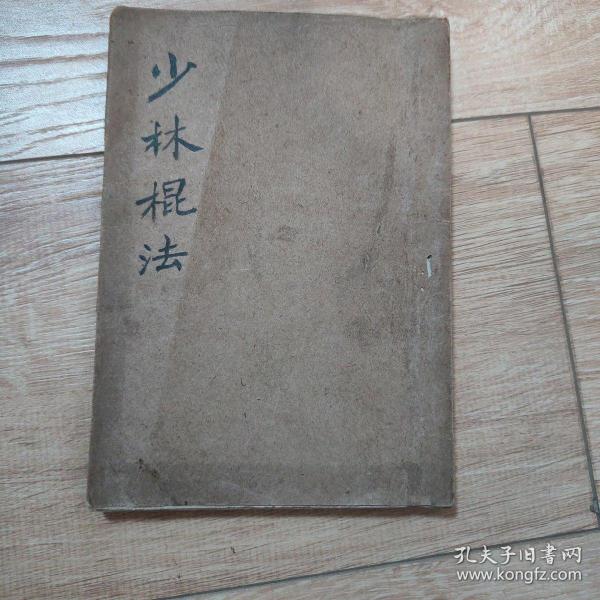 少林棍法
孔夫子旧書网
www.kongfz.com